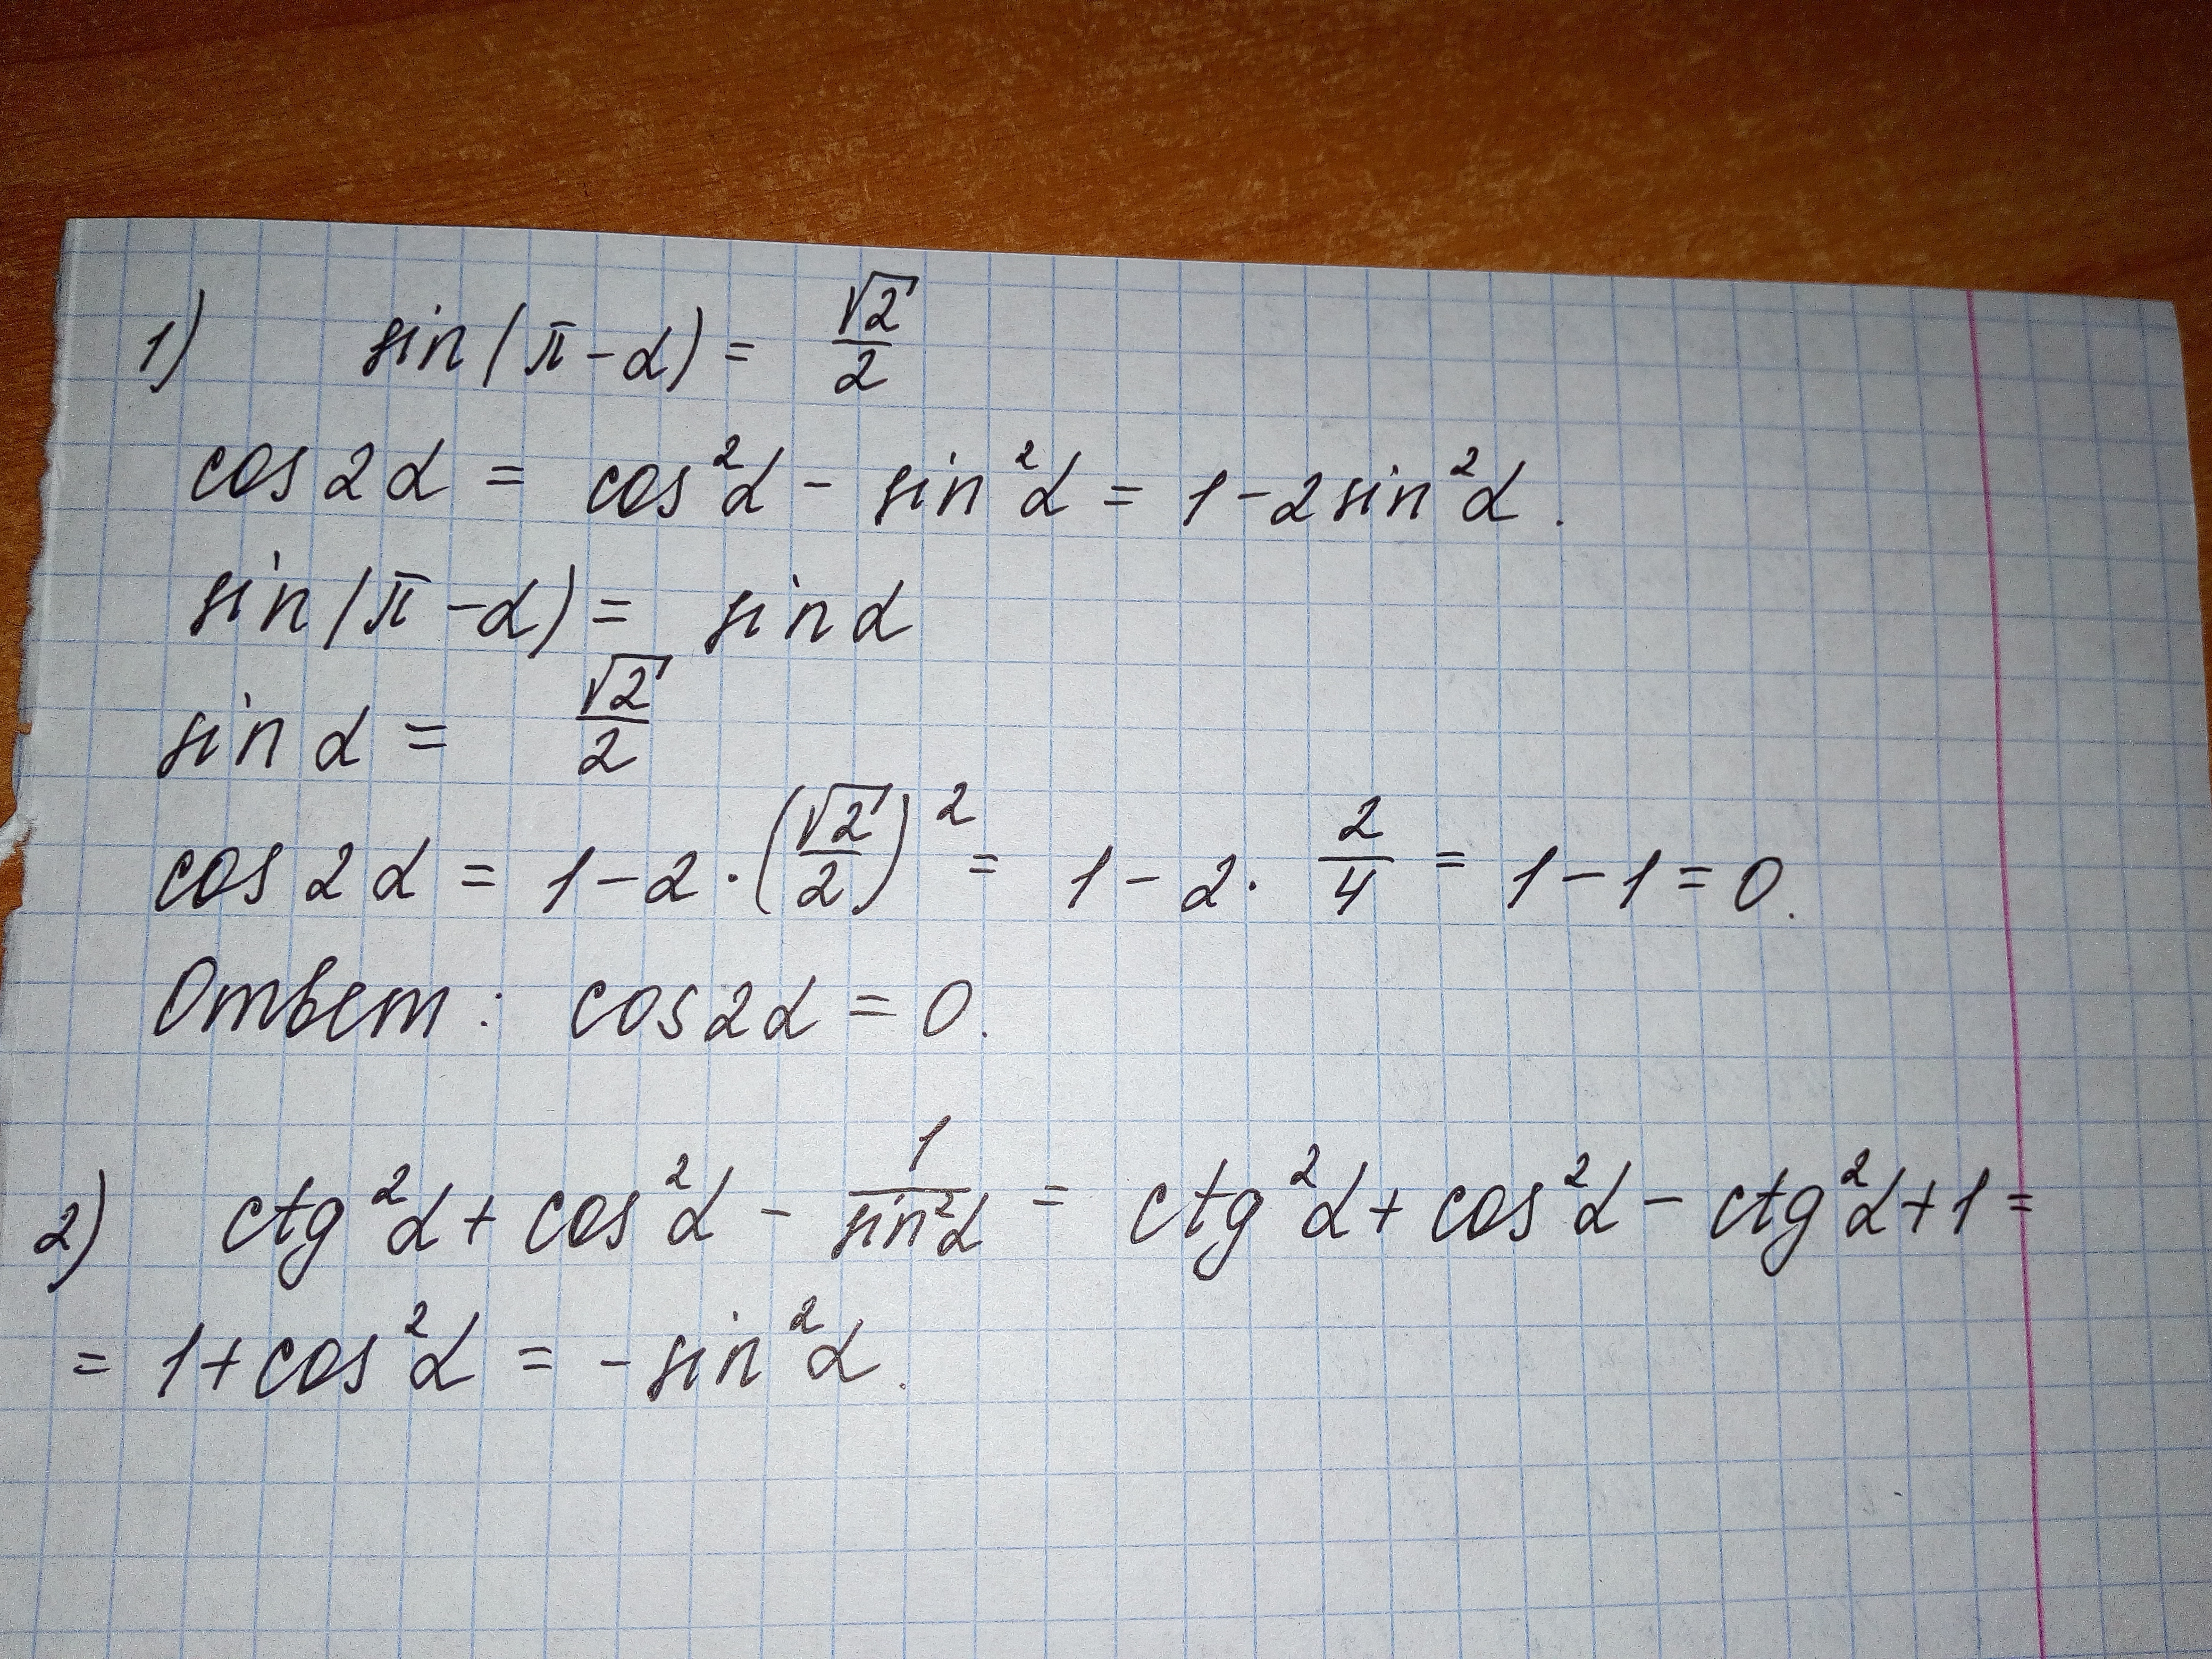 1) sin(π-α) = √2/2
cos2α = cos²α - sin²α = 1-2sin²α.
sin(π-α) = sinα
sinα = √2/2
cos2α = 1-2·(√2/2)² = 1-2·2/4 = 1-1=0.
Ответ: cos2α = 0.
2) ctg²α + cos²α - 1/sin²α = ctg²α + cos²α - ctg²α+1=
= 1+cos²α = -sin²α.